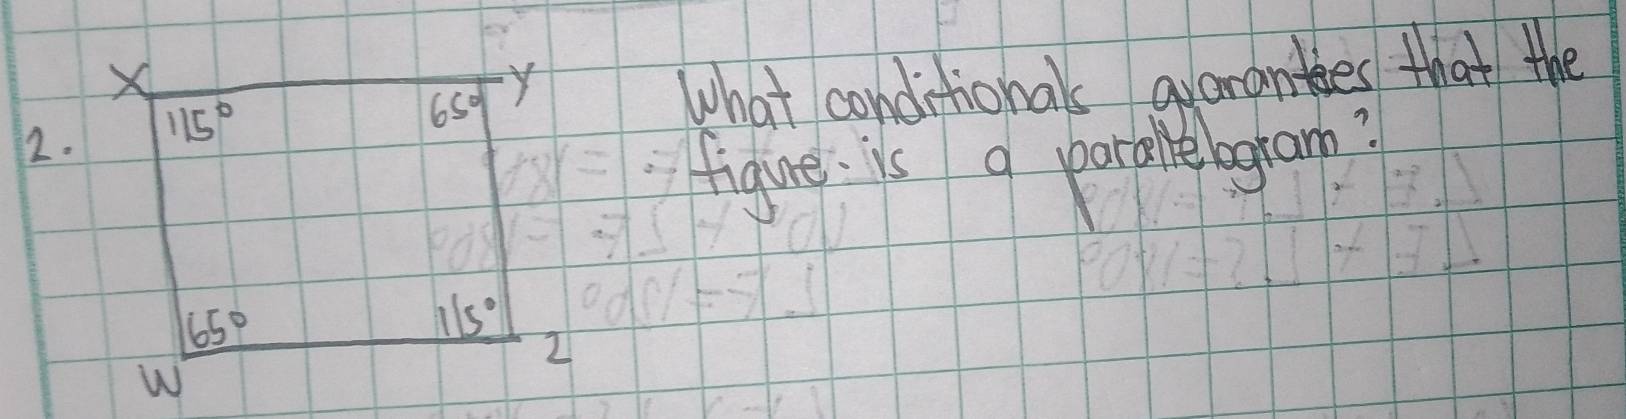 X Y What conditionals guarantees that the
2. 115° 65° figure is a parallelogram?
65° 115°
W Z